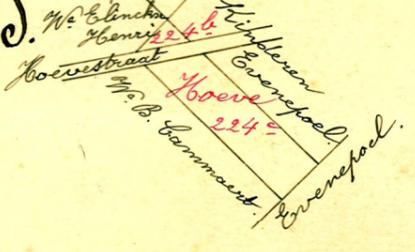 J.
We Elinckx
Henri
224b
Kinderen
Evenepoel.
Hoevestraat
Hoeve
224a
We B. Cammaert.
Evenepoel.